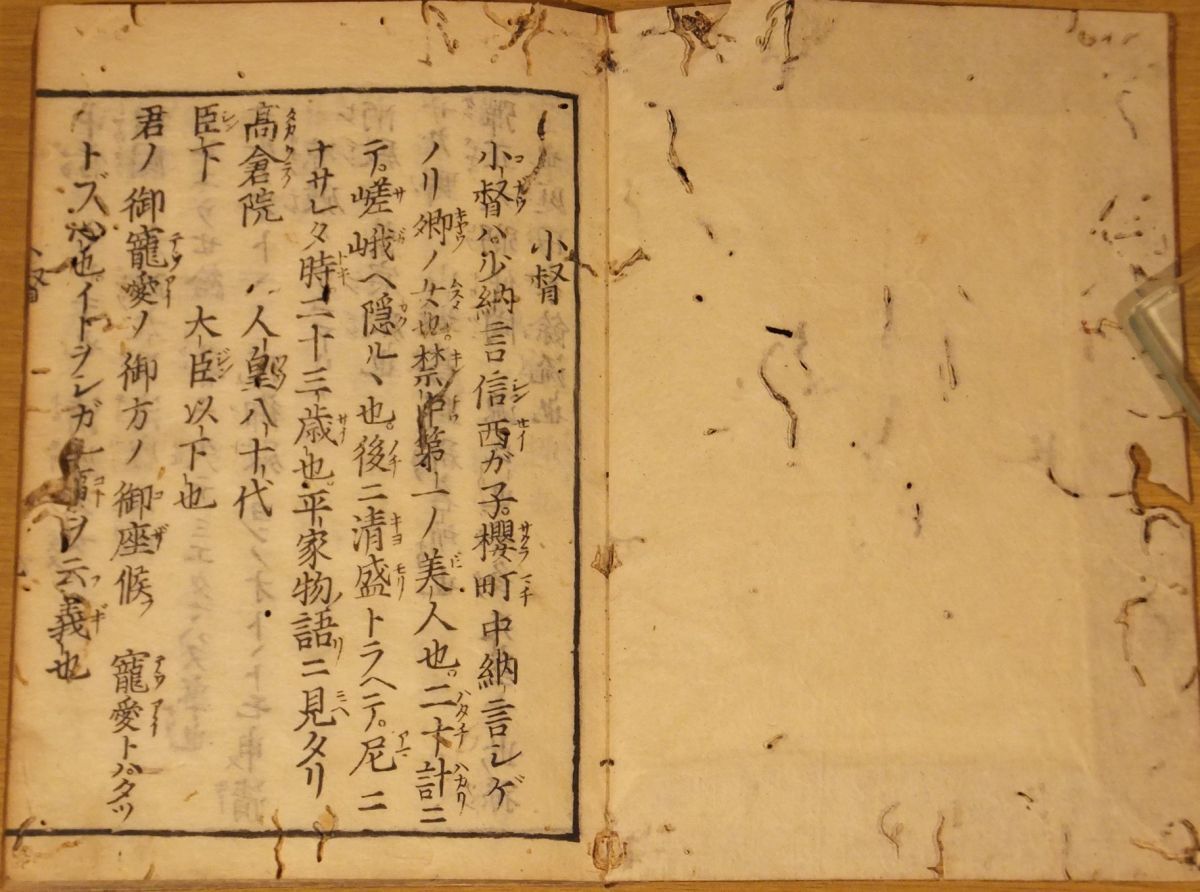 小督
小督ハ少納言信西ガ子櫻町中納言シゲ
ノリ卿ノ女也禁中第一ノ美人也二十計ニ
テ嵯峨ヘ隠ルヽ也後ニ清盛トラヘテ尼ニ
ナサレタ時二十三歳也平家物語ニ見タリ
高倉院 人皇八十代
臣下 大臣以下也
君ノ御寵愛ノ御方ノ御座候 寵愛トハタツ
トズ也イトヲシガル ヲ云義也